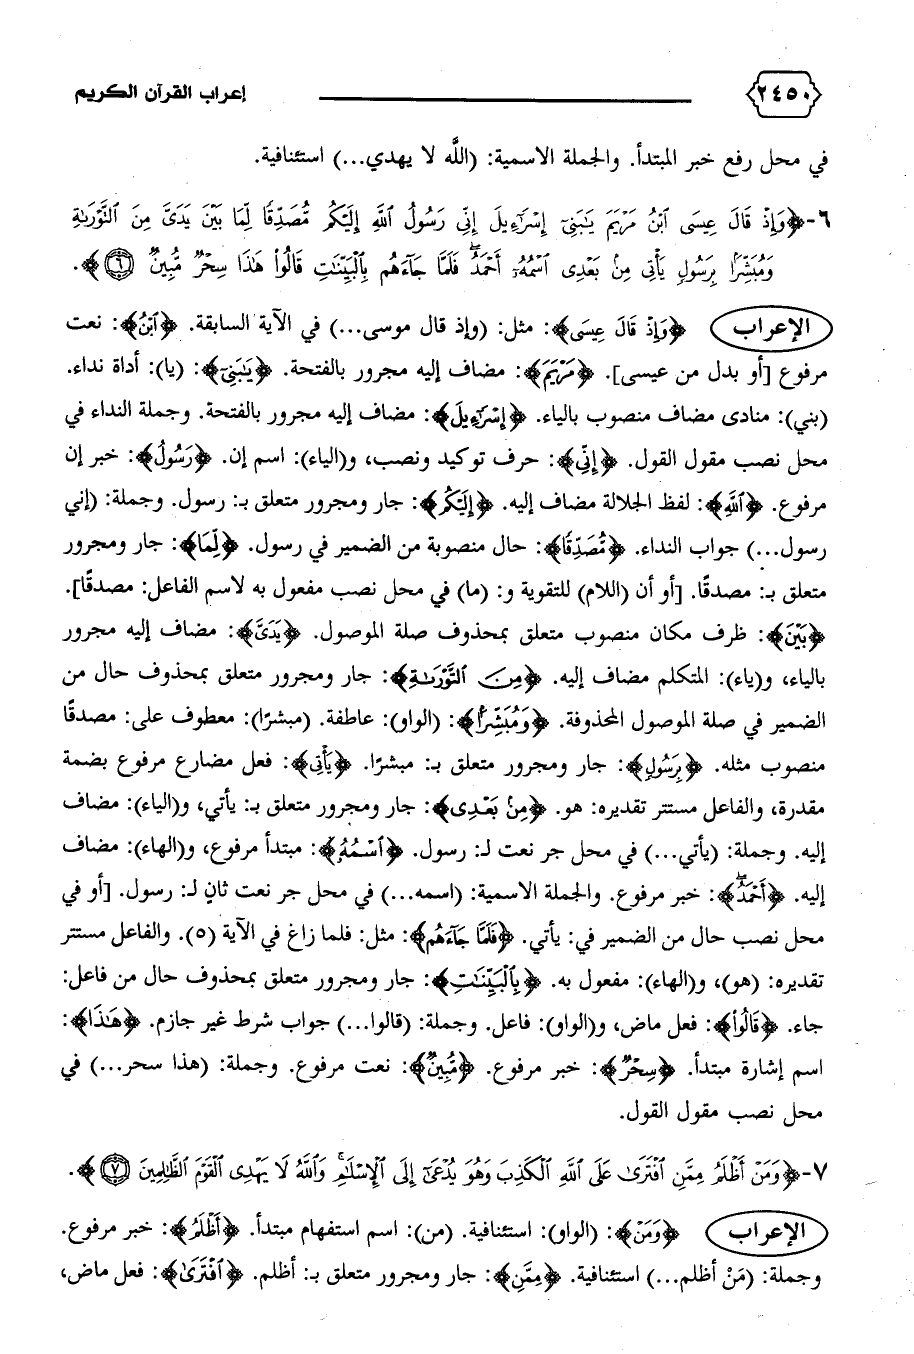 ٢٤٥٠ إعراب القرآن الكريم
في محل رفع خبر المبتدأ. والجملة الاسمية: (اللَّه لا يهدي...) استئنافية.
٦-﴿وَإِذْ قَالَ عِيسَى ٱبْنُ مَرْيَمَ يَٰبَنِىٓ إِسْرَٰٓءِيلَ إِنِّى رَسُولُ ٱللَّهِ إِلَيْكُم مُّصَدِّقًا لِّمَا بَيْنَ يَدَىَّ مِنَ ٱلتَّوْرَىٰةِ
وَمُبَشِّرًۢا بِرَسُولٍ يَأْتِى مِنۢ بَعْدِى ٱسْمُهُۥٓ أَحْمَدُ ۖ فَلَمَّا جَآءَهُم بِٱلْبَيِّنَٰتِ قَالُوا۟ هَٰذَا سِحْرٌ مُّبِينٌ ٦﴾.
الإعراب ﴿وَإِذْ قَالَ عِيسَى﴾: مثل: (وإذ قال موسى...) في الآية السابقة. ﴿ٱبْنُ﴾: نعت
مرفوع [أو بدل من عيسى]. ﴿مَرْيَمَ﴾: مضاف إليه مجرور بالفتحة. ﴿يَٰبَنِىٓ﴾: (يا): أداة نداء.
(بني): منادى مضاف منصوب بالياء. ﴿إِسْرَٰٓءِيلَ﴾: مضاف إليه مجرور بالفتحة. وجملة النداء في
محل نصب مقول القول. ﴿إِنِّى﴾: حرف توكيد ونصب، و(الياء): اسم إن. ﴿رَسُولُ﴾: خبر إن
مرفوع. ﴿ٱللَّهِ﴾: لفظ الجلالة مضاف إليه. ﴿إِلَيْكُم﴾: جار ومجرور متعلق بـ: رسول. وجملة: (إني
رسول...) جواب النداء. ﴿مُّصَدِّقًا﴾: حال منصوبة من الضمير في رسول. ﴿لِّمَا﴾: جار ومجرور
متعلق بـ: مصدقًا. [أو أن (اللام) للتقوية و: (ما) في محل نصب مفعول به لاسم الفاعل: مصدقًا].
﴿بَيْنَ﴾: ظرف مكان منصوب متعلق بمحذوف صلة الموصول. ﴿يَدَىَّ﴾: مضاف إليه مجرور
بالياء، و(ياء): المتكلم مضاف إليه. ﴿مِنَ ٱلتَّوْرَىٰةِ﴾: جار ومجرور متعلق بمحذوف حال من
الضمير في صلة الموصول المحذوفة. ﴿وَمُبَشِّرًۢا﴾: (الواو): عاطفة. (مبشرًا): معطوف على: مصدقًا
منصوب مثله. ﴿بِرَسُولٍ﴾: جار ومجرور متعلق بـ: مبشرًا. ﴿يَأْتِى﴾: فعل مضارع مرفوع بضمة
مقدرة، والفاعل مستتر تقديره: هو. ﴿مِنۢ بَعْدِى﴾: جار ومجرور متعلق بـ: يأتي، و(الياء): مضاف
إليه. وجملة: (يأتي...) في محل جر نعت لـ: رسول. ﴿ٱسْمُهُۥٓ﴾: مبتدأ مرفوع، و(الهاء): مضاف
إليه. ﴿أَحْمَدُ ۖ﴾: خبر مرفوع. والجملة الاسمية: (اسمه...) في محل جر نعت ثانٍ لـ: رسول. [أو في
محل نصب حال من الضمير في: يأتي. ﴿فَلَمَّا جَآءَهُم﴾: مثل: فلما زاغ في الآية (٥). والفاعل مستتر
تقديره: (هو)، و(الهاء): مفعول به. ﴿بِٱلْبَيِّنَٰتِ﴾: جار ومجرور متعلق بمحذوف حال من فاعل:
جاء. ﴿قَالُوا۟﴾: فعل ماض، و(الواو): فاعل. وجملة: (قالوا...) جواب شرط غير جازم. ﴿هَٰذَا﴾:
اسم إشارة مبتدأ. ﴿سِحْرٌ﴾: خبر مرفوع. ﴿مُّبِينٌ﴾: نعت مرفوع. وجملة: (هذا سحر...) في
محل نصب مقول القول.
٧-﴿وَمَنْ أَظْلَمُ مِمَّنِ ٱفْتَرَىٰ عَلَى ٱللَّهِ ٱلْكَذِبَ وَهُوَ يُدْعَىٰٓ إِلَى ٱلْإِسْلَٰمِ ۚ وَٱللَّهُ لَا يَهْدِى ٱلْقَوْمَ ٱلظَّٰلِمِينَ ٧﴾.
الإعراب ﴿وَمَنْ﴾: (الواو): استئنافية. (من): اسم استفهام مبتدأ. ﴿أَظْلَمُ﴾: خبر مرفوع.
وجملة: (مَنْ أظلم...) استئنافية. ﴿مِمَّنِ﴾: جار ومجرور متعلق بـ: أظلم. ﴿ٱفْتَرَىٰ﴾: فعل ماض،